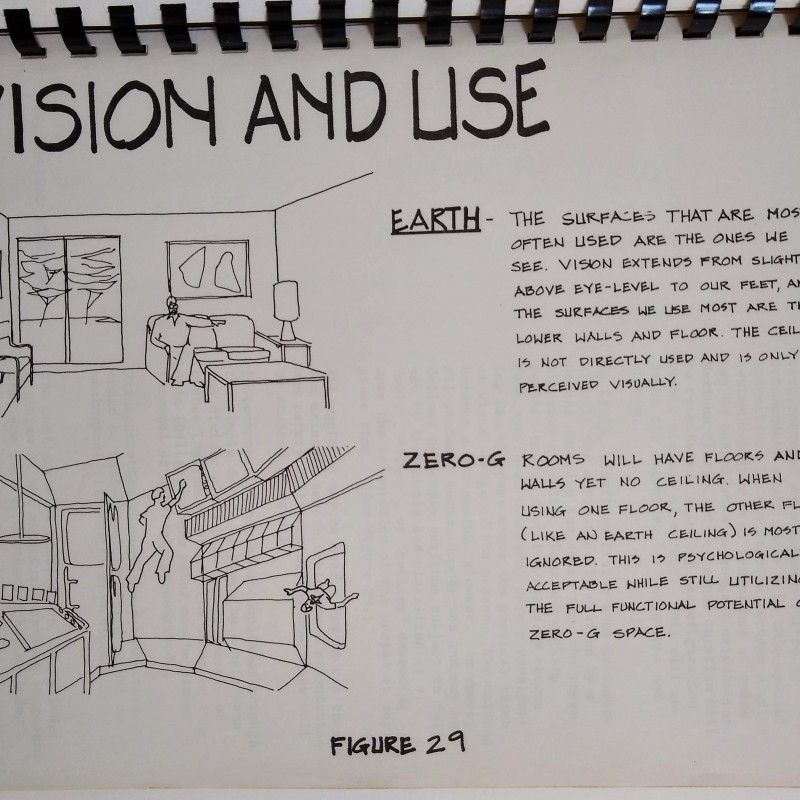 VISION AND USE
EARTH - THE SURFACES THAT ARE MOS
OFTEN USED ARE THE ONES WE
SEE. VISION EXTENDS FROM SLIGHT
ABOVE EYE-LEVEL TO OUR FEET, AN
THE SURFACES WE USE MOST ARE TH
LOWER WALLS AND FLOOR. THE CEIL
IS NOT DIRECTLY USED AND IS ONLY
PERCEIVED VISUALLY.
ZERO-G ROOMS WILL HAVE FLOORS AND
WALLS YET NO CEILING. WHEN
USING ONE FLOOR, THE OTHER FL
(LIKE AN EARTH CEILING) IS MOST
IGNORED. THIS IS PSYCHOLOGICAL
ACCEPTABLE WHILE STILL UTILIZING
THE FULL FUNCTIONAL POTENTIAL O
ZERO-G SPACE.
FIGURE 29